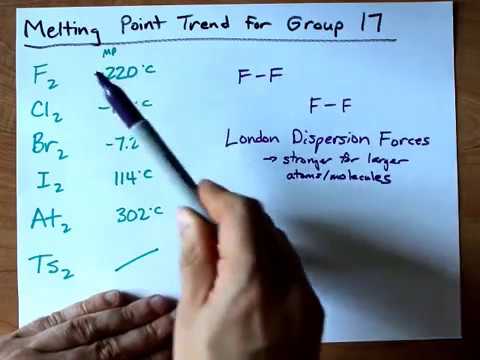 Melting Point Trend for Group 17
MP
F₂ -220°C
Cl₂
Br₂ -7.2
I₂ 114°C
At₂ 302°C
Ts₂
F-F
F-F
London Dispersion Forces
→ stronger for larger
atoms/molecules